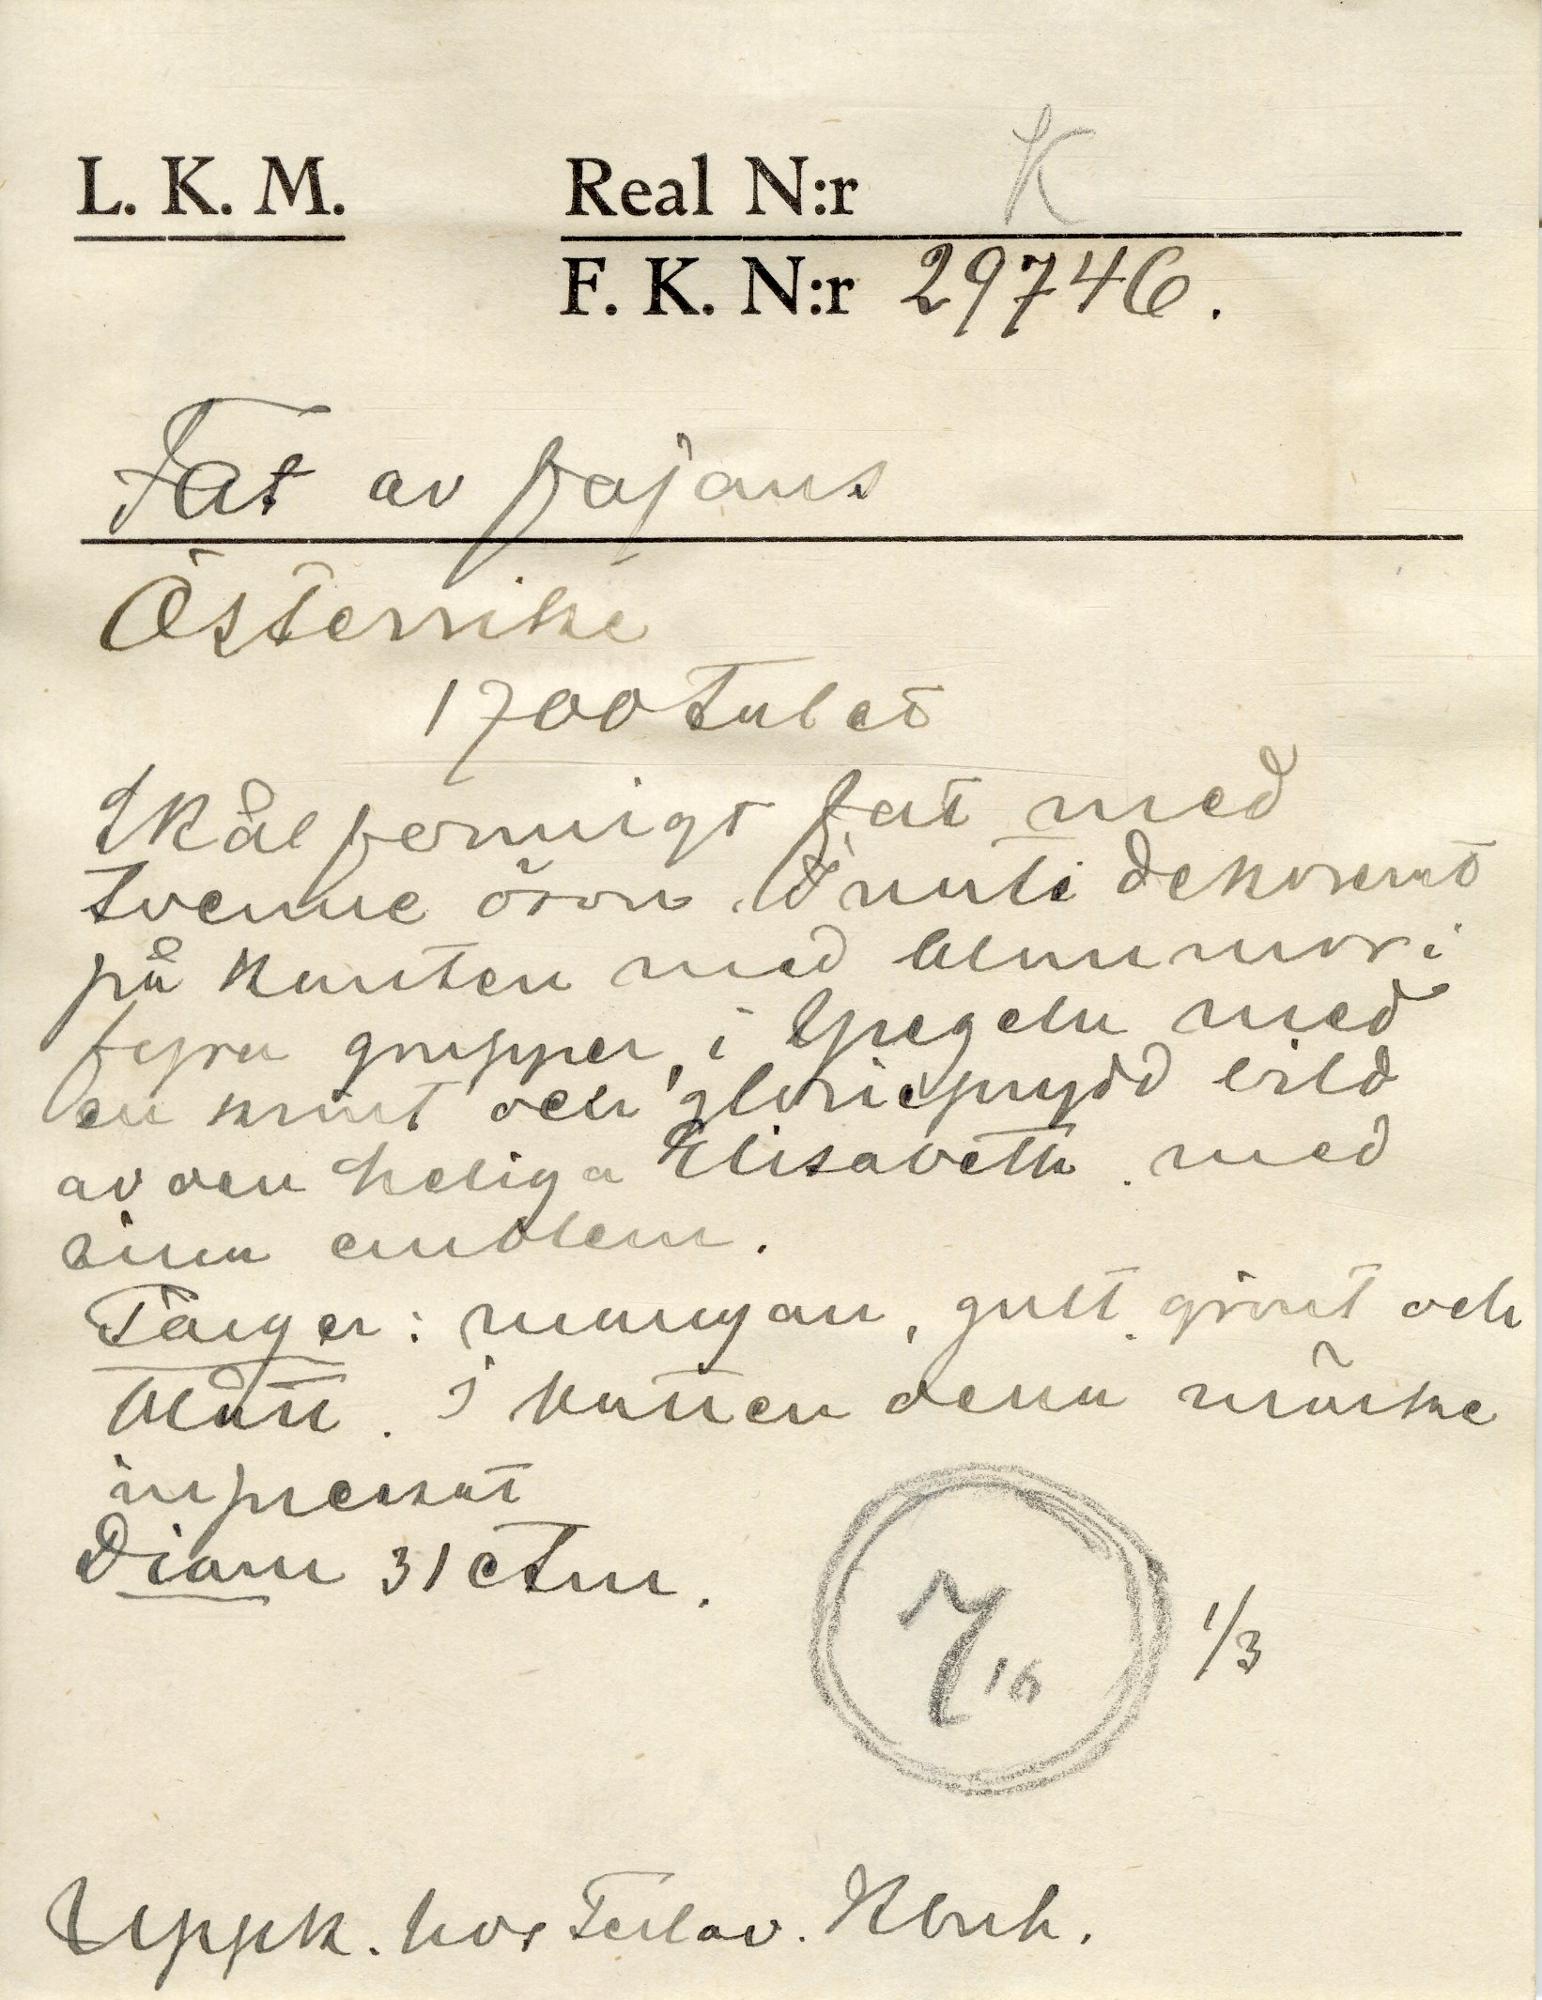 L. K. M.
Real N:r K
F. K. N:r 29746.
Fat av fajans
Österrike
1700 talet
Skålformigt fat med
tvenne öron. Inuti dekorerat
på kanten med blommor i
fyra grupper, i Spegeln med
en krönt och glorieprydd bild
av den heliga Elisabeth. med
sina emblem.
Färger: mangan, gult, grönt och
blått. I botten detta märke
inpressat
Diam 31 ctm.
16
1/3
Uppk. hos